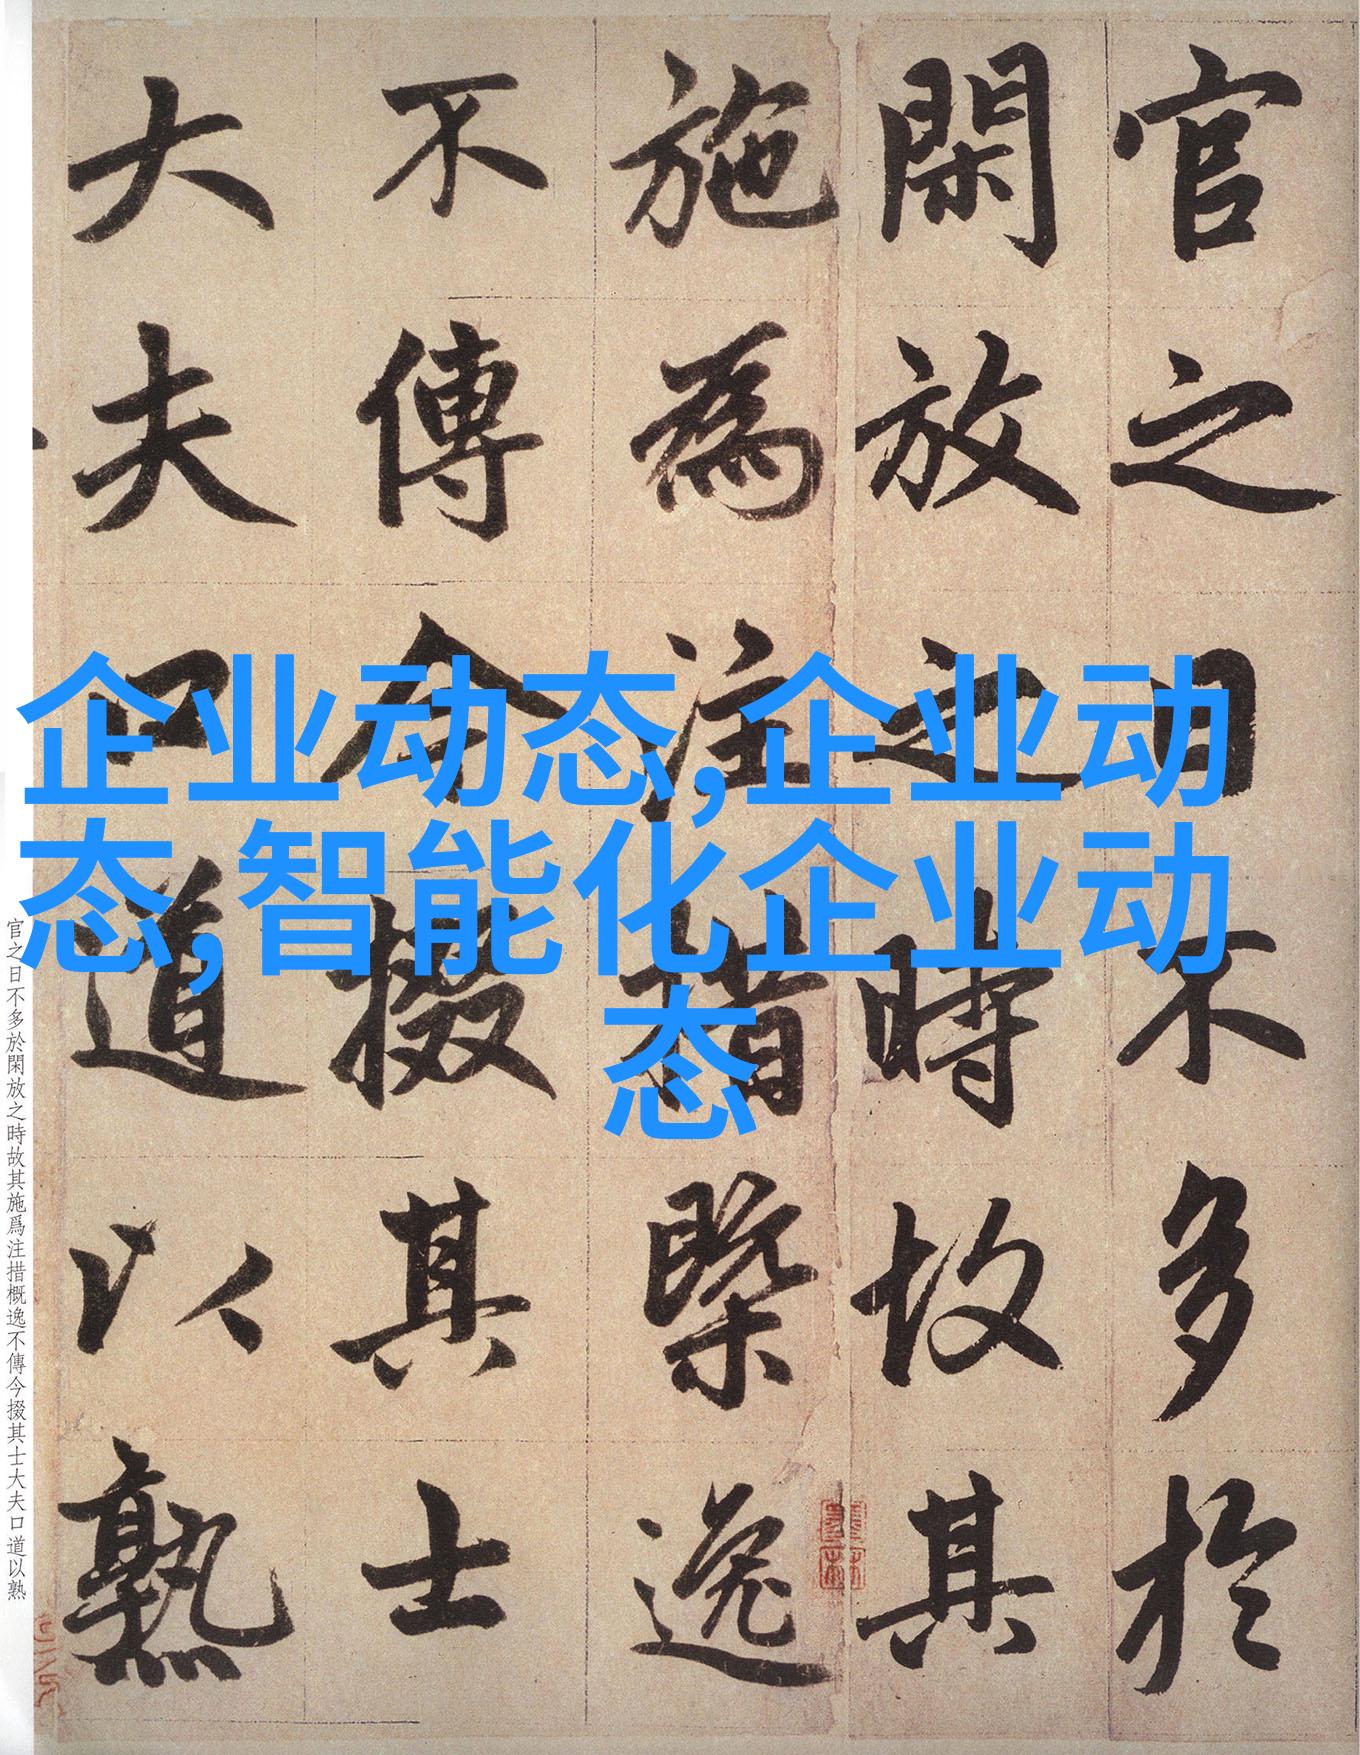 官之日不多於
閑放之時故其
施為注措槩逸
不傳今掇其士
大夫口道以熟
企业动态,企业动
态,智能化企业动
态
官之日不多於閑放之時故其施爲注措概逸不傳今掇其士大夫口道以熟